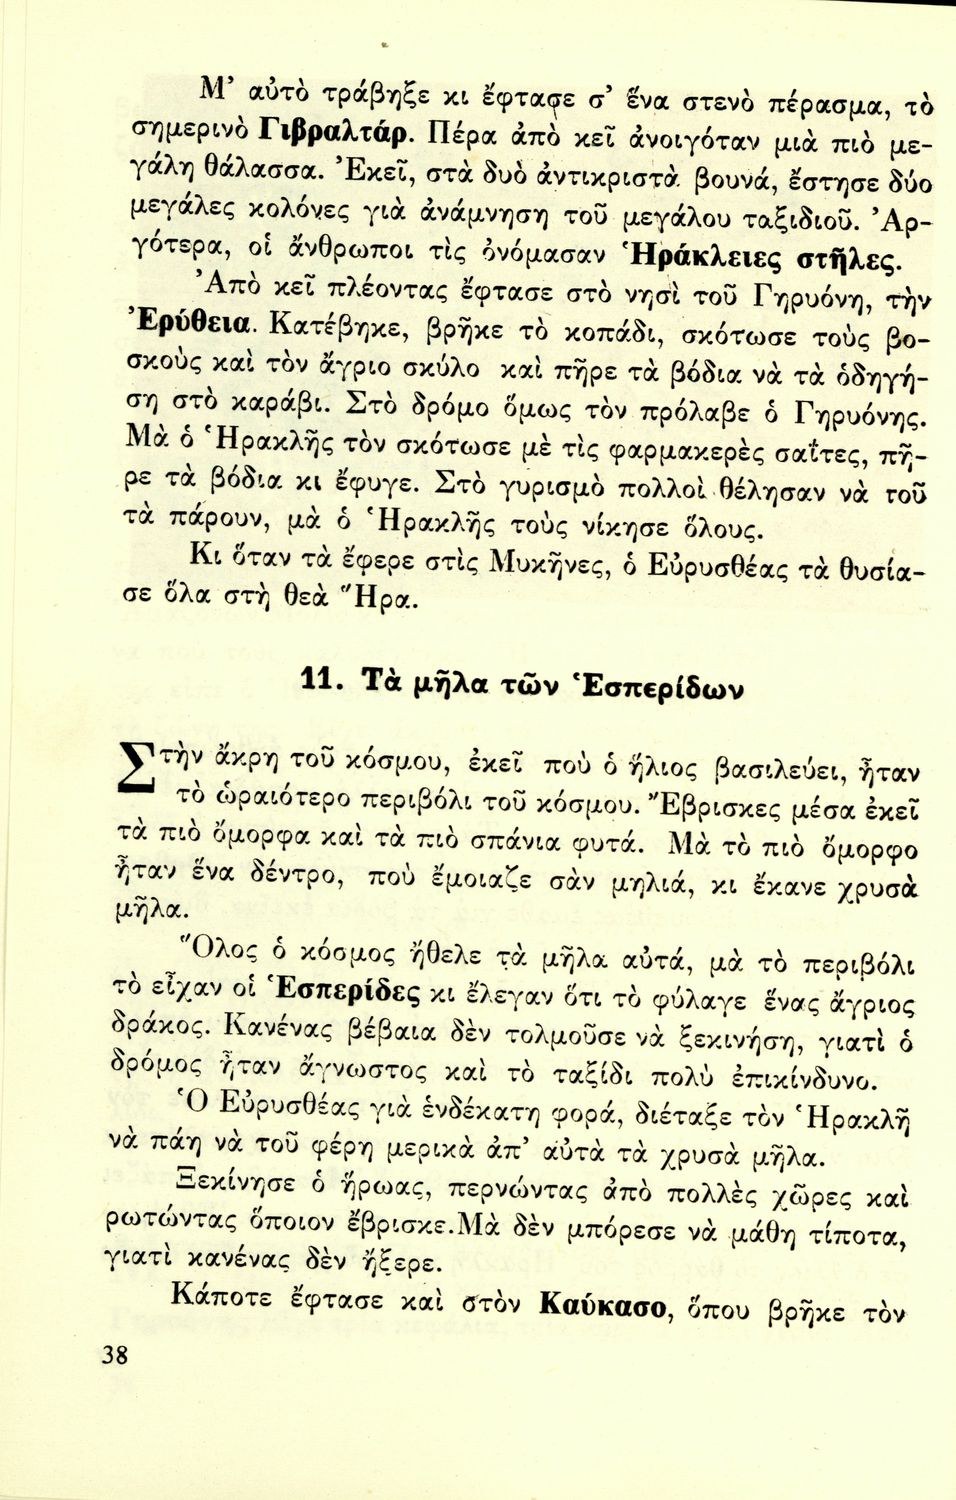 Μ’ αὐτὸ τράβηξε κι ἔφτασε σ’ ἕνα στενὸ πέρασμα, τὸ
σημερινὸ Γιβραλτάρ. Πέρα ἀπὸ κεῖ ἀνοιγόταν μιὰ πιὸ με-
γάλη θάλασσα. Ἐκεῖ, στὰ δυὸ ἀντικριστὰ βουνά, ἔστησε δύο
μεγάλες κολόνες γιὰ ἀνάμνηση τοῦ μεγάλου ταξιδιοῦ. Ἀρ-
γότερα, οἱ ἄνθρωποι τὶς ὀνόμασαν Ἡράκλειες στῆλες.
Ἀπὸ κεῖ πλέοντας ἔφτασε στὸ νησὶ τοῦ Γηρυόνη, τὴν
Ἐρύθεια. Κατέβηκε, βρῆκε τὸ κοπάδι, σκότωσε τοὺς βο-
σκοὺς καὶ τὸν ἄγριο σκύλο καὶ πῆρε τὰ βόδια νὰ τὰ ὁδηγή-
ση στὸ καράβι. Στὸ δρόμο ὅμως τὸν πρόλαβε ὁ Γηρυόνης.
Μὰ ὁ Ἡρακλῆς τὸν σκότωσε μὲ τὶς φαρμακερὲς σαΐτες, πῆ-
ρε τὰ βόδια κι ἔφυγε. Στὸ γυρισμὸ πολλοὶ θέλησαν νὰ τοῦ
τὰ πάρουν, μὰ ὁ Ἡρακλῆς τοὺς νίκησε ὅλους.
Κι ὅταν τὰ ἔφερε στὶς Μυκῆνες, ὁ Εὐρυσθέας τὰ θυσία-
σε ὅλα στὴ θεὰ Ἥρα.
11. Τὰ μῆλα τῶν Ἑσπερίδων
Στὴν ἄκρη τοῦ κόσμου, ἐκεῖ ποὺ ὁ ἥλιος βασιλεύει, ἦταν
τὸ ὡραιότερο περιβόλι τοῦ κόσμου. Ἔβρισκες μέσα ἐκεῖ
τὰ πιὸ ὄμορφα καὶ τὰ πιὸ σπάνια φυτά. Μὰ τὸ πιὸ ὄμορφο
ἦταν ἕνα δέντρο, ποὺ ἔμοιαζε σὰν μηλιά, κι ἔκανε χρυσὰ
μῆλα.
Ὅλος ὁ κόσμος ἤθελε τὰ μῆλα αὐτά, μὰ τὸ περιβόλι
τὸ εἶχαν οἱ Ἑσπερίδες κι ἔλεγαν ὅτι τὸ φύλαγε ἕνας ἄγριος
δράκος. Κανένας βέβαια δὲν τολμοῦσε νὰ ξεκινήση, γιατὶ ὁ
δρόμος ἦταν ἄγνωστος καὶ τὸ ταξίδι πολὺ ἐπικίνδυνο.
Ὁ Εὐρυσθέας γιὰ ἑνδέκατη φορά, διέταξε τὸν Ἡρακλῆ
νὰ πάη νὰ τοῦ φέρη μερικὰ ἀπ’ αὐτὰ τὰ χρυσὰ μῆλα.
Ξεκίνησε ὁ ἥρωας, περνώντας ἀπὸ πολλὲς χῶρες καὶ
ρωτώντας ὅποιον ἔβρισκε. Μὰ δὲν μπόρεσε νὰ μάθη τίποτα,
γιατὶ κανένας δὲν ἤξερε.
Κάποτε ἔφτασε καὶ στὸν Καύκασο, ὅπου βρῆκε τὸν
38